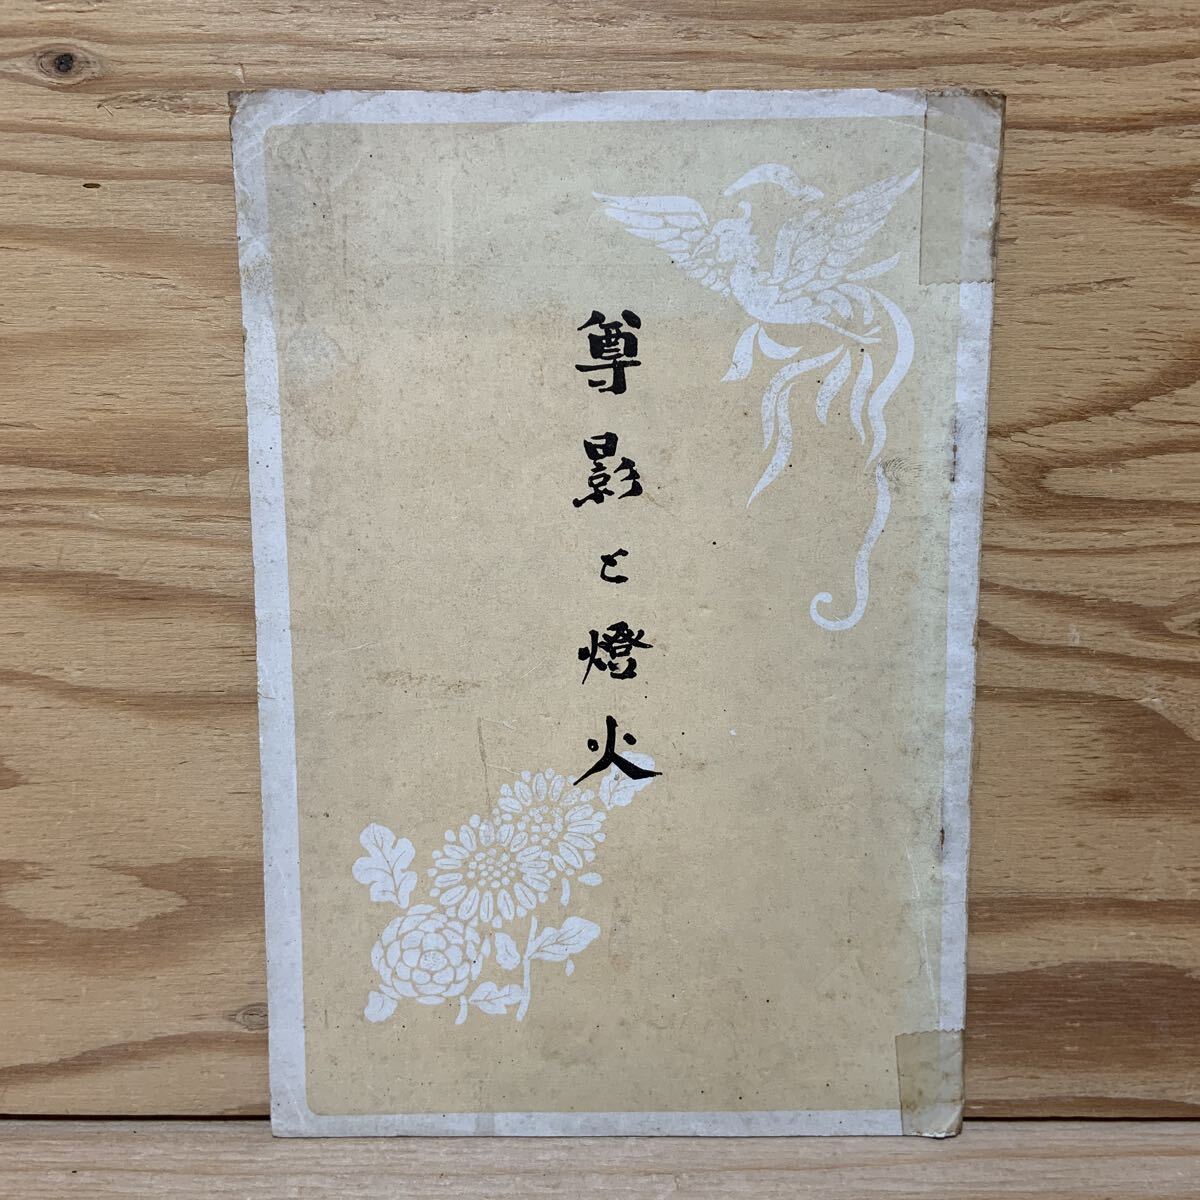 尊影と燈火